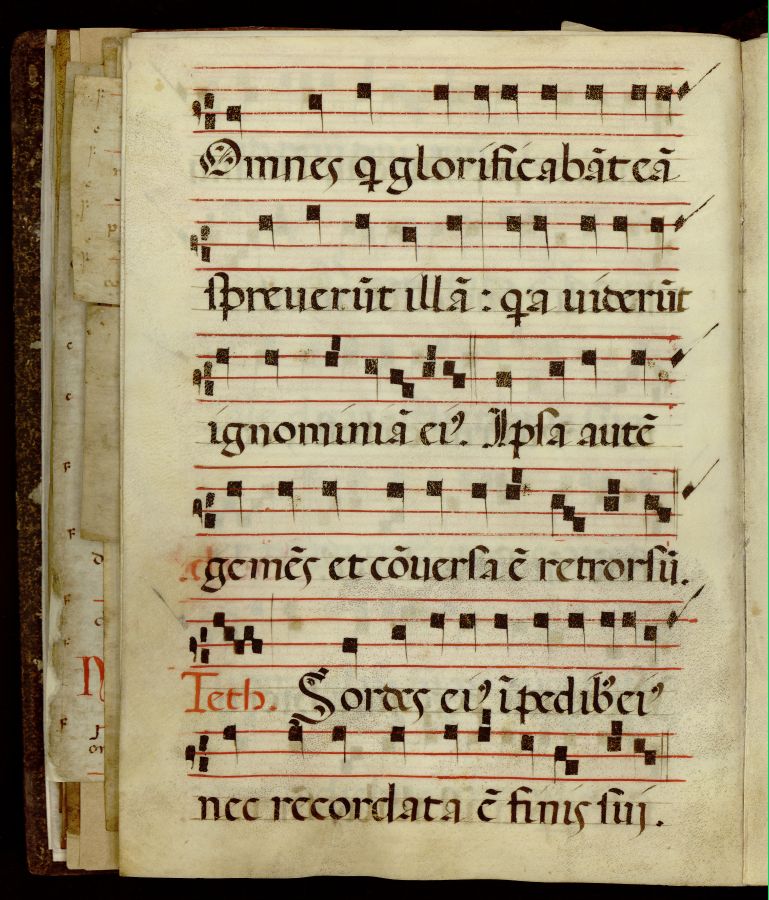 Omnes q glorificabāt eā
spreuerūt illā : qa uiderūt
ignominiā eiꝰ. Ipsa autē
gemēs et cōuersa ē retrorsū.
Teth. Sordes eiꝰ ī pedibꝰ eiꝰ
nec recordata ē finis sui .